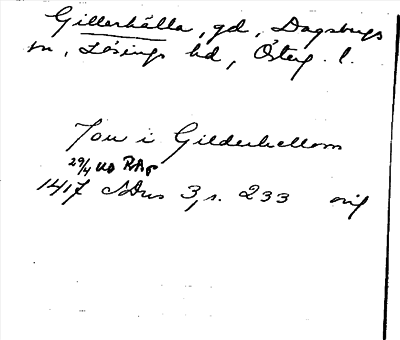 Gillerhälla, gd, Dagsbergs
sn, Lösings hd, Österg. l.
Jon i Gilderhellom
29/4 uo RAp
1417 SDns 3, s. 233 orig